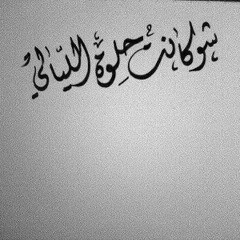 شو كانت حلوة الليالي